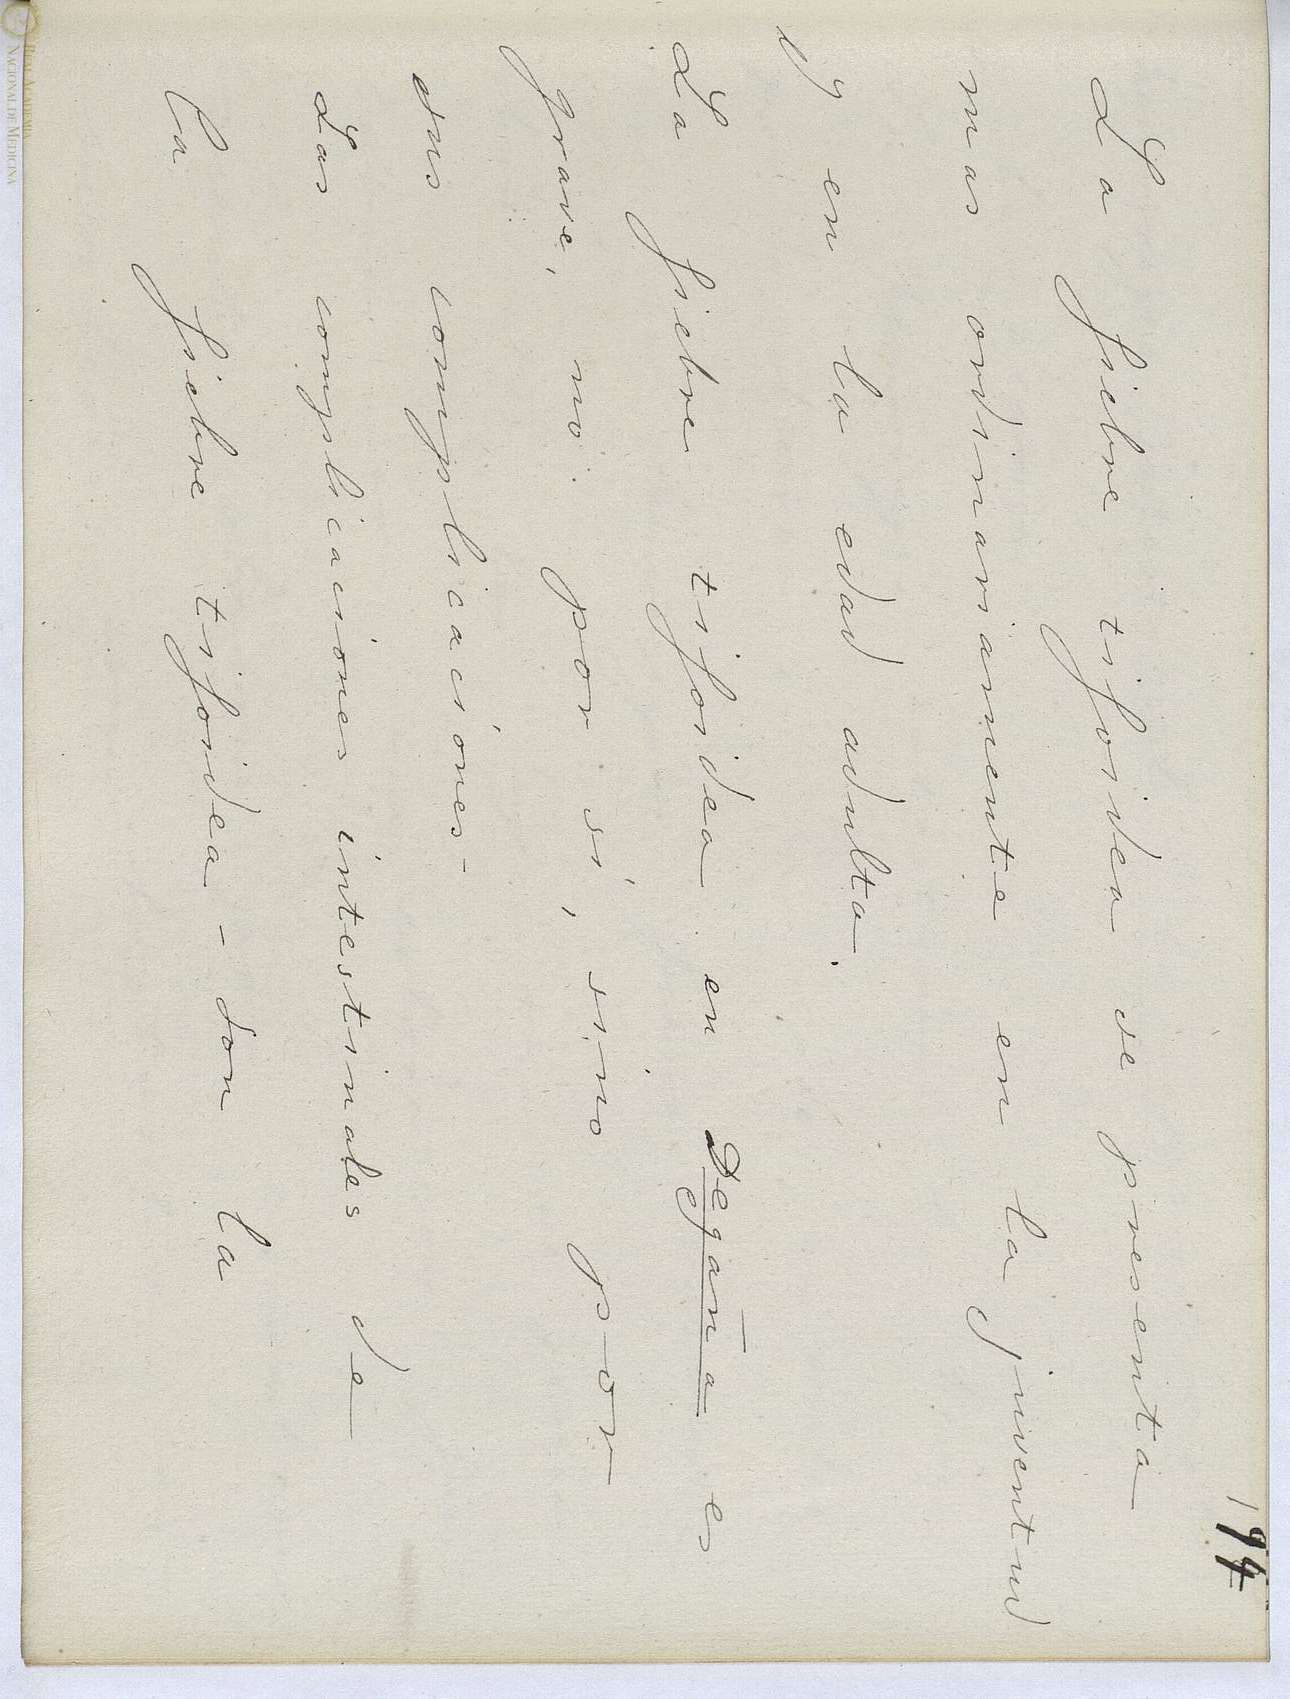 194
La fiebre tifoidea se presenta
mas ordinariamente en la juventud
y en la edad adulta.
La fiebre tifoidea en Degaña es
grave, no por sí, sino por
sus complicaciones-
Las complicaciones intestinales de
la fiebre tifoidea - son la
REAL ACADEMIA
NACIONAL DE MEDICINA